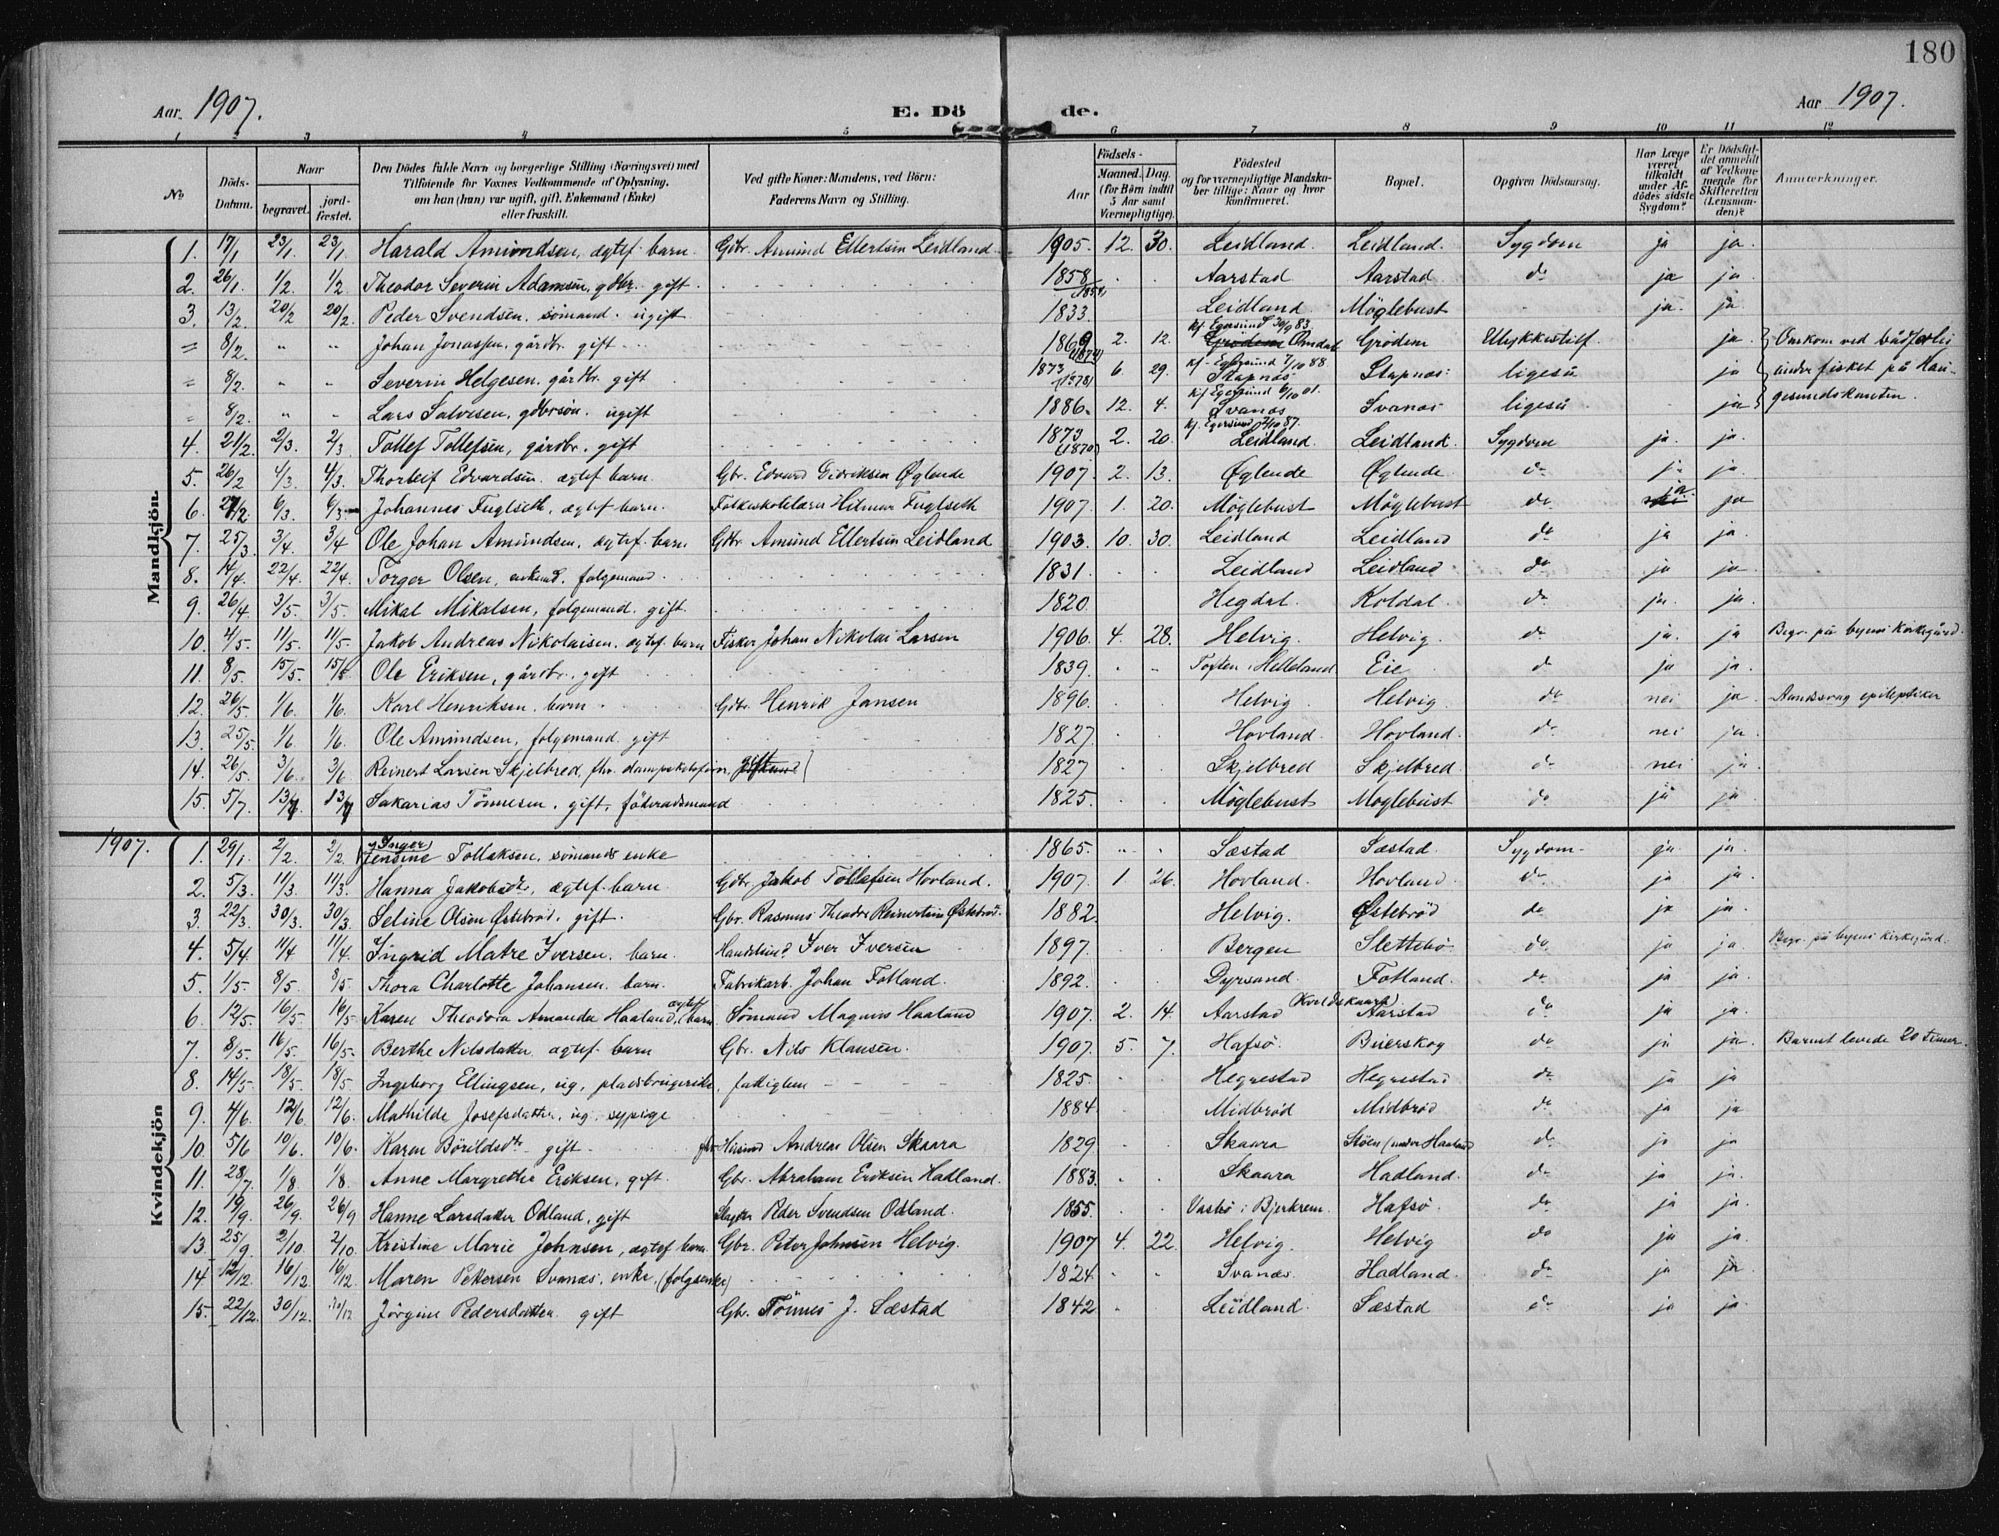 180
Aar 1907. E. Dö de. Aar 1907.
1 2 3 4 5 6 7 8 9 10 11 12
No Döds-Datum. Naar begravet. jordfæstet. Den Dödes fulde Navn og borgerlige Stilling (Næringsvei) med Tilföiende for Voxnes Vedkommende af Oplysning, om han (hun) var ugift, gift, Enkemand (Enke) eller fraskilt. Ved gifte Koner: Mandens, ved Börn: Faderens Navn og Stilling. Födsels- Aar Maaned. Dag. (for Börn indtil 5 Aar samt Værnepligtige). Födested og for værnepligtige Mandskaber tillige: Naar og hvor konfirmeret. Bopæl. Opgiven Dödsaarsag. Har Læge været tilkaldt under Afdödes sidste Sygdom? Er Dödsfaldet anmeldt af Vedkommende for Skifteretten (Lensmanden)? Anmærkninger.
Mandkjön.
1. 17/1 23/1. 23/1. Harald Amundsen, ægtef. barn Gdbr. Amund Ellertsen Leidland 1905. 12. 30. Leidland. Leidland. Sygdom ja ja.
2. 26/1. 1/2. 1/2. Theodor Severin Adamsen, gdbr. gift. 1858 Aarstad Aarstad. do ja ja.
3. 13/2. 20/2 20/2. Peder Svendsen. sömand. ugift 1833. Leidland Möglebust ja. ja
" 8/2. " " Johan Jonassen, gårdbr. gift. 1869 2. 12. kf. Egersund 30/9 83. Grödem Omdal Grödem Ulykkestilf. ja Omkom ved bådforlis
" 8/2. " " Severin Helgesen. gårdbr. gift 1873 6. 29. kf. Egersund 7/10 88 Stapnæs Stapnæs. ligeså ja under fisket på Hau-
" 8/2. " " Lars Salvesen, gdbrsön. ugift 1886. 12. 4. kf. Egersund 6/10 01. Svanæs Svanæs ligeså ja gesundskanten.
4. 21/2. 2/3. 2/3 Tollef Tollefsen, gårdbr. gift 1873 (1870) 2. 20. kf. Egersund 2/10 87. Leidland Leidland. Sygdom ja. ja.
5. 26/2 4/3. 4/3. Thorleif Edvardsen. ægtef. barn. Gbr. Edvard Didriksen Öglende 1907. 2. 13. Öglende Öglende. do ja ja.
6. 27/2 6/3. 6/3. Johannes Fuglseth, ægtef. barn. Folkeskolelærer Hilmar Fuglseth 1907. 1. 20. Möglebust Möglebust do nei ja ja
7. 25/3. 3/4. 3/4 Ole Johan Amundsen, ægtef. barn Gdbr Amund Ellertsen Leidland 1903. 10. 30. Leidland Leidland do ja ja.
8. 14/4. 22/4. 22/4. Torger Olsen, enkemd. folgemand. 1831. Leidland Leidland do ja ja.
9. 26/4 3/5. 3/5. Mikal Mikalsen, folgemand. gift. 1820 Hegdal. Koldal. do ja. ja.
10. 4/5. 11/5. 11/5. Jakob Andreas Nikolaisen. ægtef. barn Fisker Johan Nikolai Larsen 1906. 4. 28. Helvig. Helvig. do ja. ja. Begr. på byens kirkegård.
11. 8/5. 15/5. 15/5. Ole Eriksen, gårdbr. gift 1839. i Helleland Eie do ja ja.
12. 26/5. 1/6. 1/6. Karl Henriksen. barn Gdbr. Henrik Jansen 1896. Helvig. Helvig. do nei ja Aandssvag epileptiker
13. 25/5. 1/6 1/6. Ole Amundsen, folgemand. gift 1827. Hovland. Hovland. do nei ja.
14. 26/5. 3/6. 3/6 Reinert Larsen Skjelbred, fhv. gift 1827 Skjelbred Skjelbred. do nei ja
15. 5/7. Sakarias Tönnesen, gift, föderaadsmand 1825. Möglebust Moglebust do ja ja.
1907.
Kvindekjön
1. 29/1. 2/2. 2/2. (Inger) Jensine Tollaksen, sömands enke 1865. Sæstad Sæstad. Sygdom ja ja.
2. 5/3. 11/3. 11/3. Hanna Jakobsdtr, ægtef. barn. Gdbr. Jakob Tollafsen Hovland. 1907. 1. 26. Hovland. Hovland do ja ja.
3. 22/3. 30/3. 30/3. Seline Olsen Östebröd, gift. Gbr. Rasmus Theodor Reinertsen Östebröd. 1882. Helvig. Östebröd do ja ja.
4. 5/4. 11/4 11/4. Ingrid Matre Iversen. barn. Iver Iversen 1897. Bergen Slettebö do ja ja. Begr. på byens kirkegård.
5. 1/5. 8/5. 8/5. Thora Charlotte Johansen. barn. Fabrikarb. Johan Fotland. 1892. Dyrsand. Fotland. do ja ja
6. 12/5. 16/5. 16/5 Karen Theodora Amanda Haaland, ægtef. barn Sömand Magnus Haaland 1907. 2. 14. Aarstad (Kveldskaara) Aarstad do ja ja.
7. 8/5. 16/5. 16/5. Berthe Nilsdatter ægtef. barn Gbr. Nils Klausen. 1907. 5. 7. Hafsö. Beierskog do ja ja. Barnet levede 20 timer.
8. 14/5. 18/5. 18/5. Ingeborg Ellingsen, ug, pladsbrugerske, fattiglem 1825. Hegrestad Hegrestad do ja ja
9. 4/6. 12/6. 12/6. Mathilde Josefsdatter, ug, sypige 1884. Midbröd Midbröd do ja ja
10. 5/6 10/6. 10/6. Karen Börildsdtr gift. fhv. Andreas Olsen Skaara 1829. Skaara Stöen (under Haaland do ja ja.
11. 28/7 1/8 1/8. Anne Margrethe Eriksen, gift Gbr. Abraham Eriksen Hadland. 1883. Skaara Hadland. do ja ja.
12. 19/9. 26/9. 26/9 Hanne Larsdatter Odland, gift Peder Svendsen Odland. 1855. Vasbö i Bjerkrem. Hafsö. do ja ja.
13. 25/9. 2/10. 2/10. Kristine Marie Johnsen, ægtef. barn. Gbr. Peter Johnsen Helvig. 1907 4. 22. Helvig. Helvig do ja ja.
14. 12/12. 16/12 16/12. Maren Pettersen Svanæs, enke, (folgeenke) 1824. Svanæs Hadland. do ja ja.
15. 22/12. 30/12. 30/12 Jörgine Pedersdatter gift Gbr. Tönnes J. Sæstad 1842 Leidland. Sæstad do ja ja.